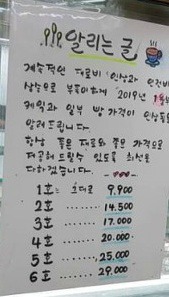 알리는 글
계속적인 재료비 인상과 인건비
상승으로 부득이하게 '2019년 1월부터
케익과 일부 빵 가격이 인상됨을
알려드립니다.
항상 좋은 재료와 좋은 가격으로
제공해 드릴수 있도록 최선을
다하겠습니다.
1호 = 그대로 9.900
2호 ........ 14.500
3호 ........ 17.000
4호 ........ 20.000
5호 ........ 25,000
6호 ....... 29.000